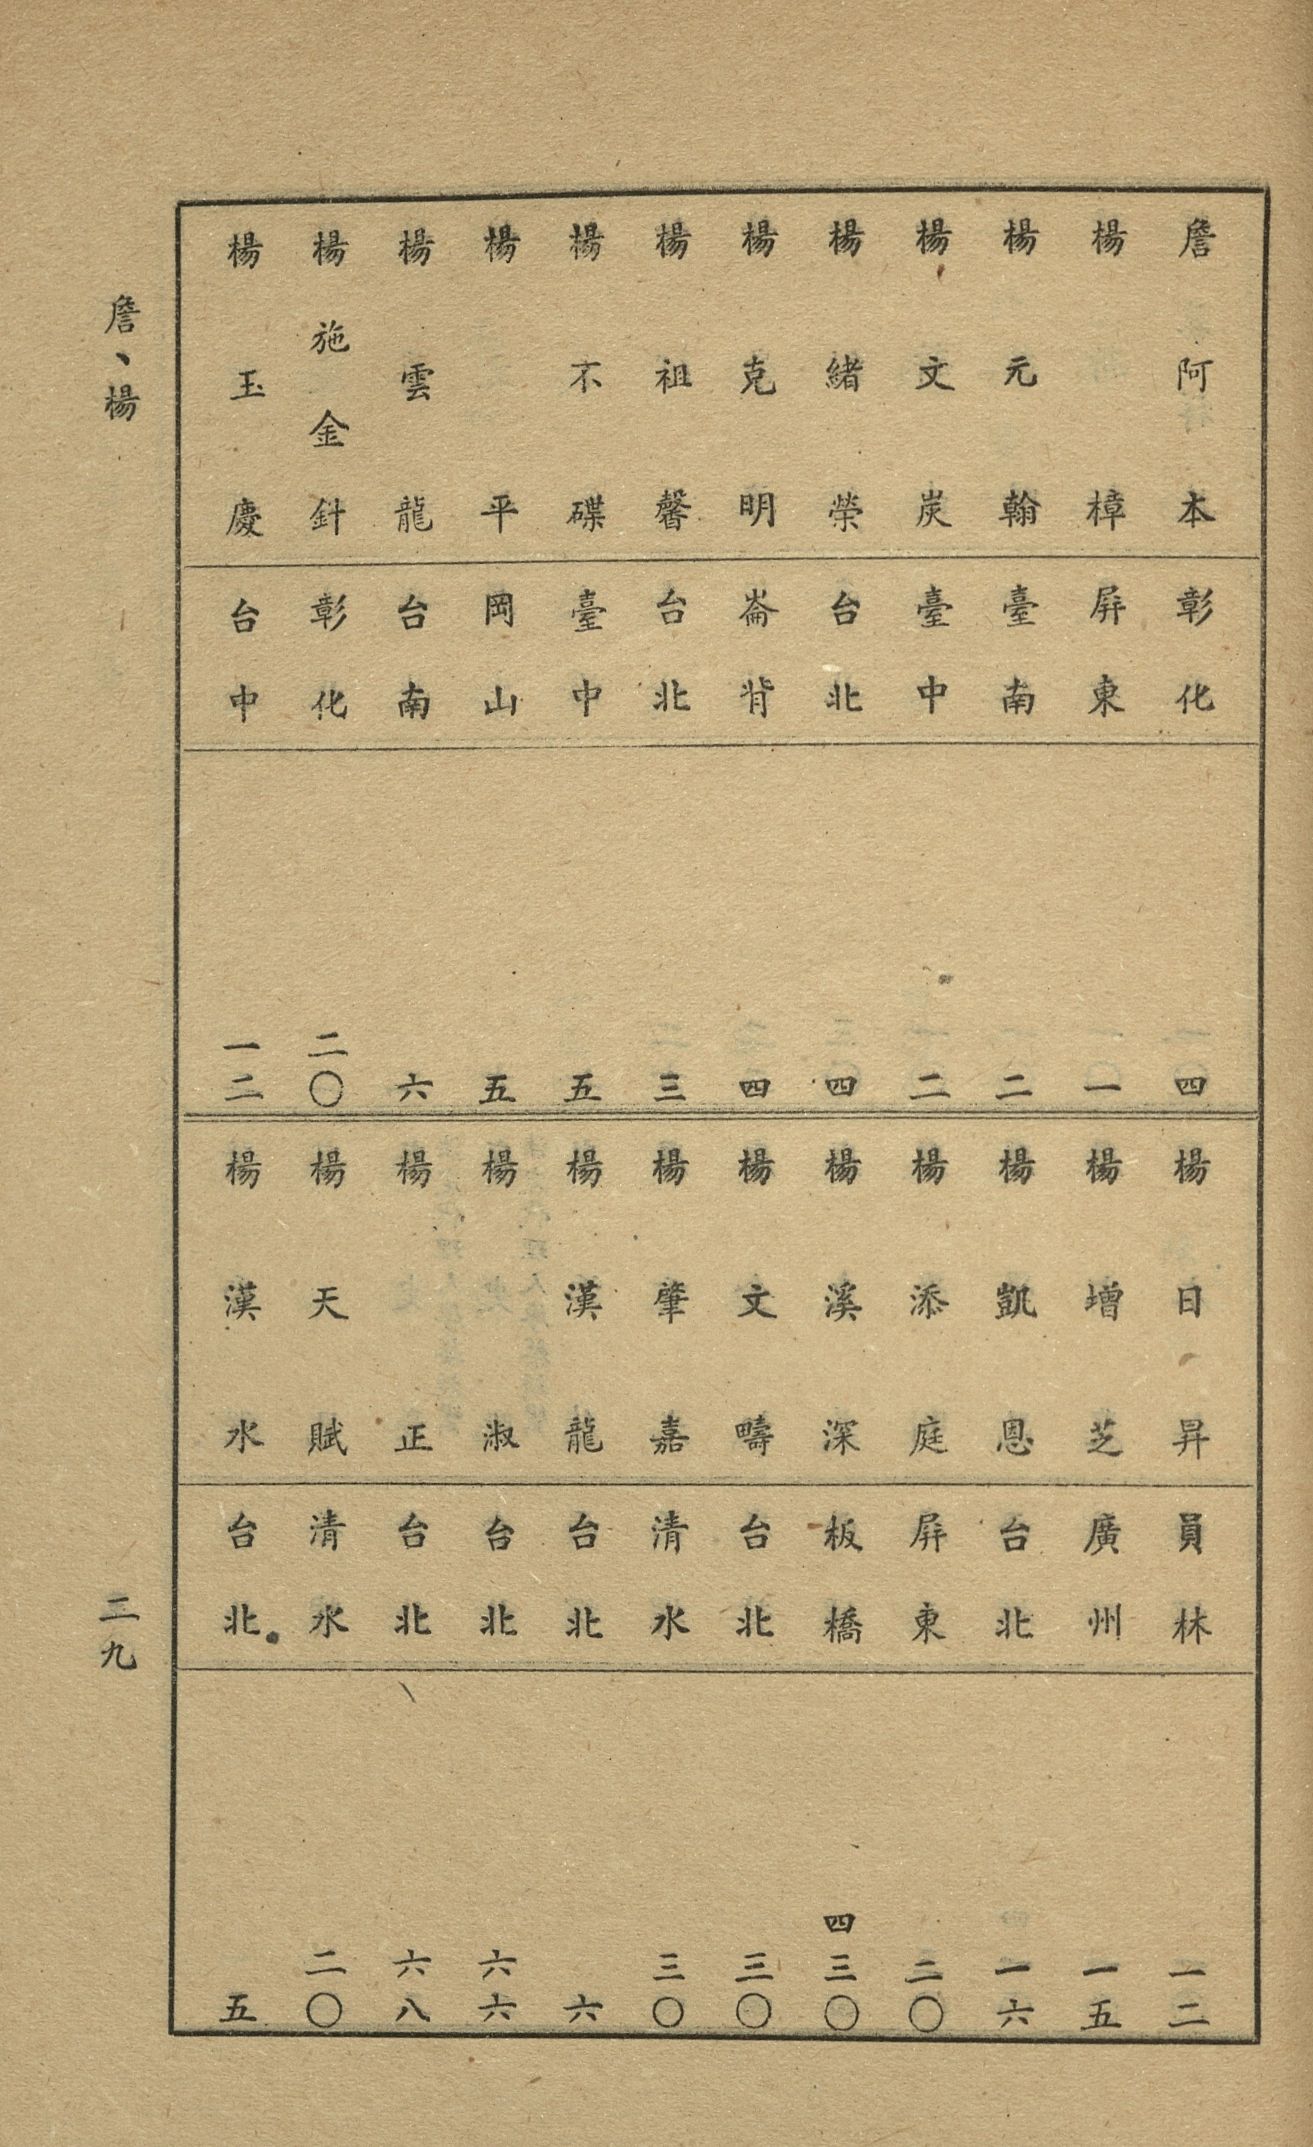 詹阿本 彰化 四
楊樟 屏東 一
楊元翰 臺南 二
楊文炭 臺中 二
楊緒榮 台北 四
楊克明 崙背 四
楊祖馨 台北 三
楊不碟 臺中 五
楊平 岡山 五
楊雲龍 台南 六
楊施金針 彰化 二〇
楊玉慶 台中 一二
楊日昇 員林 一二
楊增芝 廣州 一五
楊凱恩 台北 一六
楊添庭 屏東 二〇
楊溪深 板橋 四三〇
楊文疇 台北 三〇
楊肇嘉 清水 三〇
楊漢龍 台北 六
楊淑 台北 六六
楊正 台北 六八
楊天賦 清水 二〇
楊漢水 台北 五
詹、楊
三九